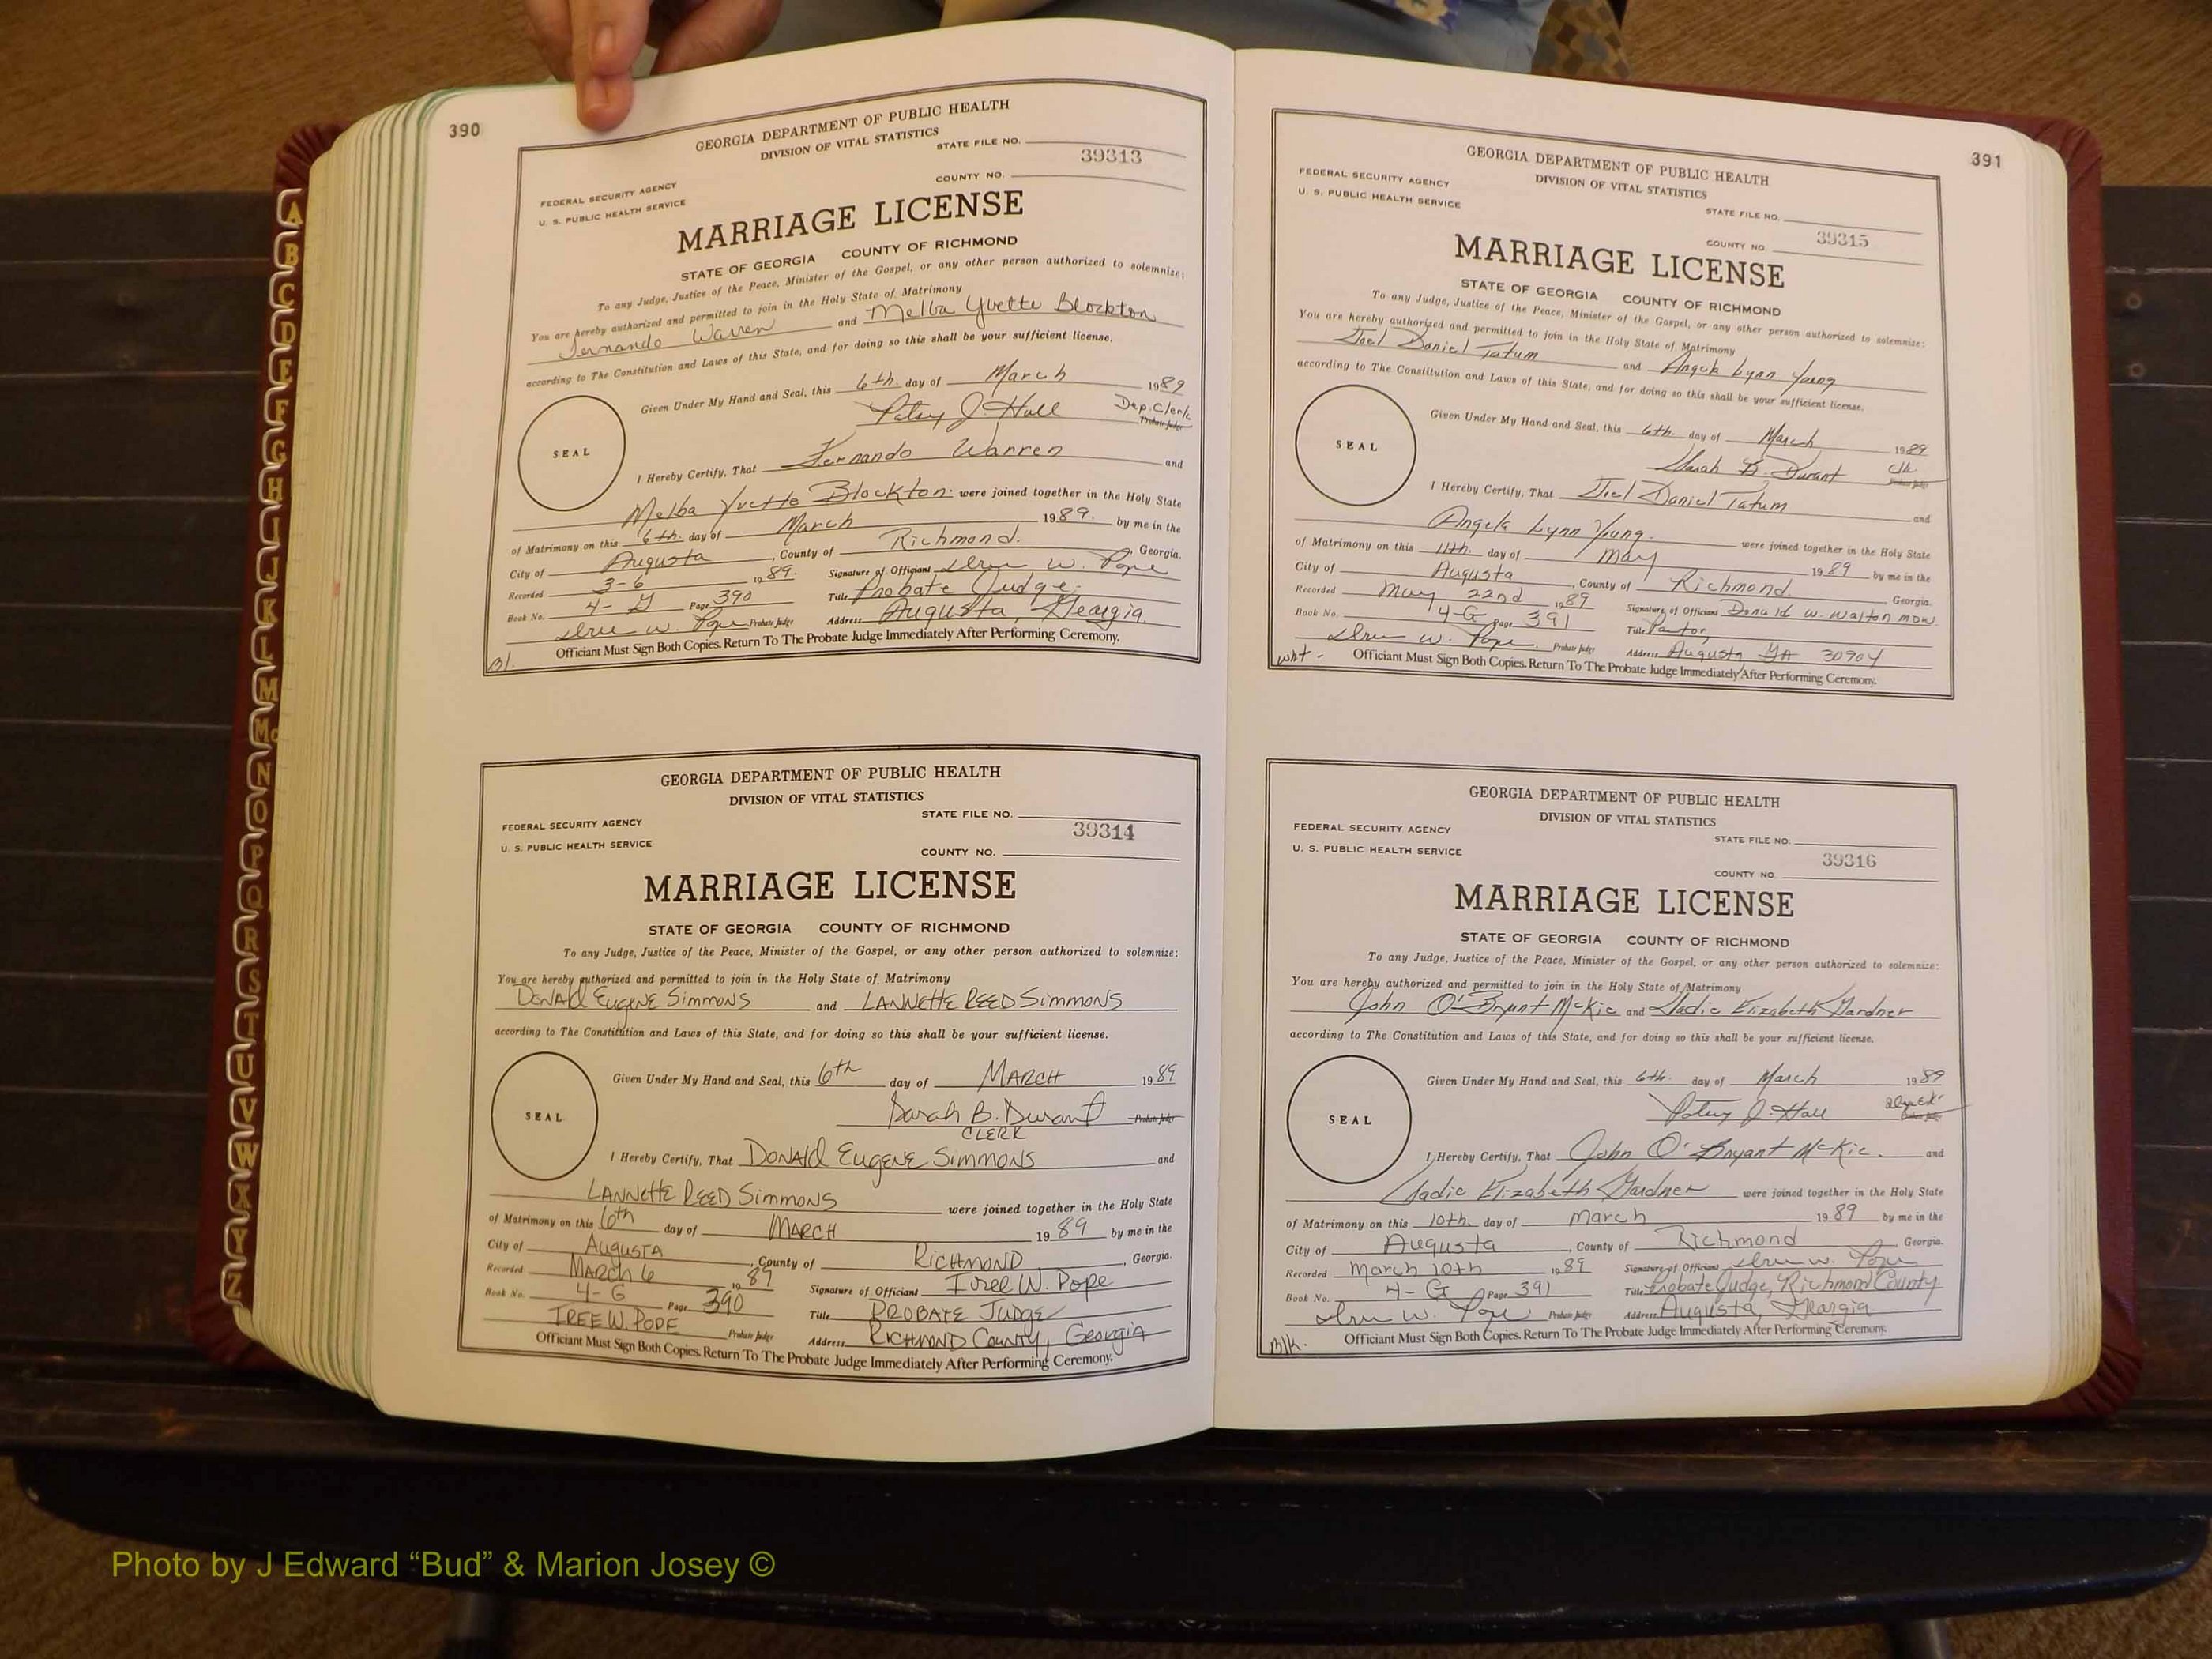 390
GEORGIA DEPARTMENT OF PUBLIC HEALTH
DIVISION OF VITAL STATISTICS
STATE FILE NO.
39313
FEDERAL SECURITY AGENCY
U. S. PUBLIC HEALTH SERVICE
COUNTY NO.
MARRIAGE LICENSE
STATE OF GEORGIA COUNTY OF RICHMOND
To any Judge, Justice of the Peace, Minister of the Gospel, or any other person authorized to solemnize:
You are hereby authorized and permitted to join in the Holy State of Matrimony
Fernando Warren and Melba Yvette Blockton
according to The Constitution and Laws of this State, and for doing so this shall be your sufficient license.
Given Under My Hand and Seal, this 6th. day of March 1989
Patsy J. Hall Dep. Clerk
Probate Judge
SEAL
I Hereby Certify, That Fernando Warren and
Melba Yvette Blockton. were joined together in the Holy State
of Matrimony on this 6th. day of March 1989. by me in the
City of Augusta, County of Richmond. Georgia.
Recorded 3-6 1989. Signature of Officiant Iree W. Pope
Book No. 4-G Page 390 Title Probate Judge
Iree W. Pope Probate Judge Address Augusta, Georgia.
Officiant Must Sign Both Copies. Return To The Probate Judge Immediately After Performing Ceremony.
Bl.
GEORGIA DEPARTMENT OF PUBLIC HEALTH
DIVISION OF VITAL STATISTICS
STATE FILE NO.
39314
FEDERAL SECURITY AGENCY
U. S. PUBLIC HEALTH SERVICE
COUNTY NO.
MARRIAGE LICENSE
STATE OF GEORGIA COUNTY OF RICHMOND
To any Judge, Justice of the Peace, Minister of the Gospel, or any other person authorized to solemnize:
You are hereby authorized and permitted to join in the Holy State of Matrimony
DONALD EUGENE SIMMONS and LANNETTE REED SIMMONS
according to The Constitution and Laws of this State, and for doing so this shall be your sufficient license.
Given Under My Hand and Seal, this 6th day of MARCH 1989
Sarah B. Durant Probate Judge
CLERK
SEAL
I Hereby Certify, That DONALD EUGENE SIMMONS and
LANNETTE REED SIMMONS were joined together in the Holy State
of Matrimony on this 6th day of MARCH 1989 by me in the
City of AUGUSTA, County of RICHMOND, Georgia.
Recorded MARCH 6 1989 Signature of Officiant Iree W. Pope
Book No. 4-G Page 390 Title PROBATE JUDGE
IREE W. POPE Probate Judge Address RICHMOND County, Georgia
Officiant Must Sign Both Copies. Return To The Probate Judge Immediately After Performing Ceremony.
391
GEORGIA DEPARTMENT OF PUBLIC HEALTH
DIVISION OF VITAL STATISTICS
FEDERAL SECURITY AGENCY
U. S. PUBLIC HEALTH SERVICE
STATE FILE NO.
39315
COUNTY NO.
MARRIAGE LICENSE
STATE OF GEORGIA COUNTY OF RICHMOND
To any Judge, Justice of the Peace, Minister of the Gospel, or any other person authorized to solemnize:
You are hereby authorized and permitted to join in the Holy State of Matrimony
Joel Daniel Tatum and Angela Lynn Young
according to The Constitution and Laws of this State, and for doing so this shall be your sufficient license.
Given Under My Hand and Seal, this 6th. day of March 1989
Sarah B. Durant Clk
Probate Judge
SEAL
I Hereby Certify, That Joel Daniel Tatum and
Angela Lynn Young. were joined together in the Holy State
of Matrimony on this 11th. day of May 1989 by me in the
City of Augusta, County of Richmond. Georgia.
Recorded May 22nd 1989 Signature of Officiant Donald W. Walton MDW.
Book No. 4-G Page 391 Title Pastor,
Iree W. Pope. Probate Judge Address Augusta GA 30904
Officiant Must Sign Both Copies. Return To The Probate Judge Immediately After Performing Ceremony.
wht-
GEORGIA DEPARTMENT OF PUBLIC HEALTH
DIVISION OF VITAL STATISTICS
FEDERAL SECURITY AGENCY
U. S. PUBLIC HEALTH SERVICE
STATE FILE NO.
39316
COUNTY NO.
MARRIAGE LICENSE
STATE OF GEORGIA COUNTY OF RICHMOND
To any Judge, Justice of the Peace, Minister of the Gospel, or any other person authorized to solemnize:
You are hereby authorized and permitted to join in the Holy State of Matrimony
John O'Bryant McKie and Sadie Elizabeth Gardner
according to The Constitution and Laws of this State, and for doing so this shall be your sufficient license.
Given Under My Hand and Seal, this 6th. day of March 1989
Patsy J. Hall
Probate Judge
SEAL
I Hereby Certify, That John O'Bryant McKie. and
Sadie Elizabeth Gardner were joined together in the Holy State
of Matrimony on this 10th. day of March 1989 by me in the
City of Augusta, County of Richmond Georgia.
Recorded March 10th 1989 Signature of Officiant Iree W. Pope
Book No. 4-G Page 391 Title Probate Judge, Richmond County
Iree W. Pope Probate Judge Address Augusta, Georgia
Officiant Must Sign Both Copies. Return To The Probate Judge Immediately After Performing Ceremony.
Blk.
A
B
C
D
E
F
G
H
I
J
K
L
M
Mc
N
O
P
Q
R
S
T
U
V
W
X
Y
Z
Photo by J Edward “Bud” & Marion Josey ©